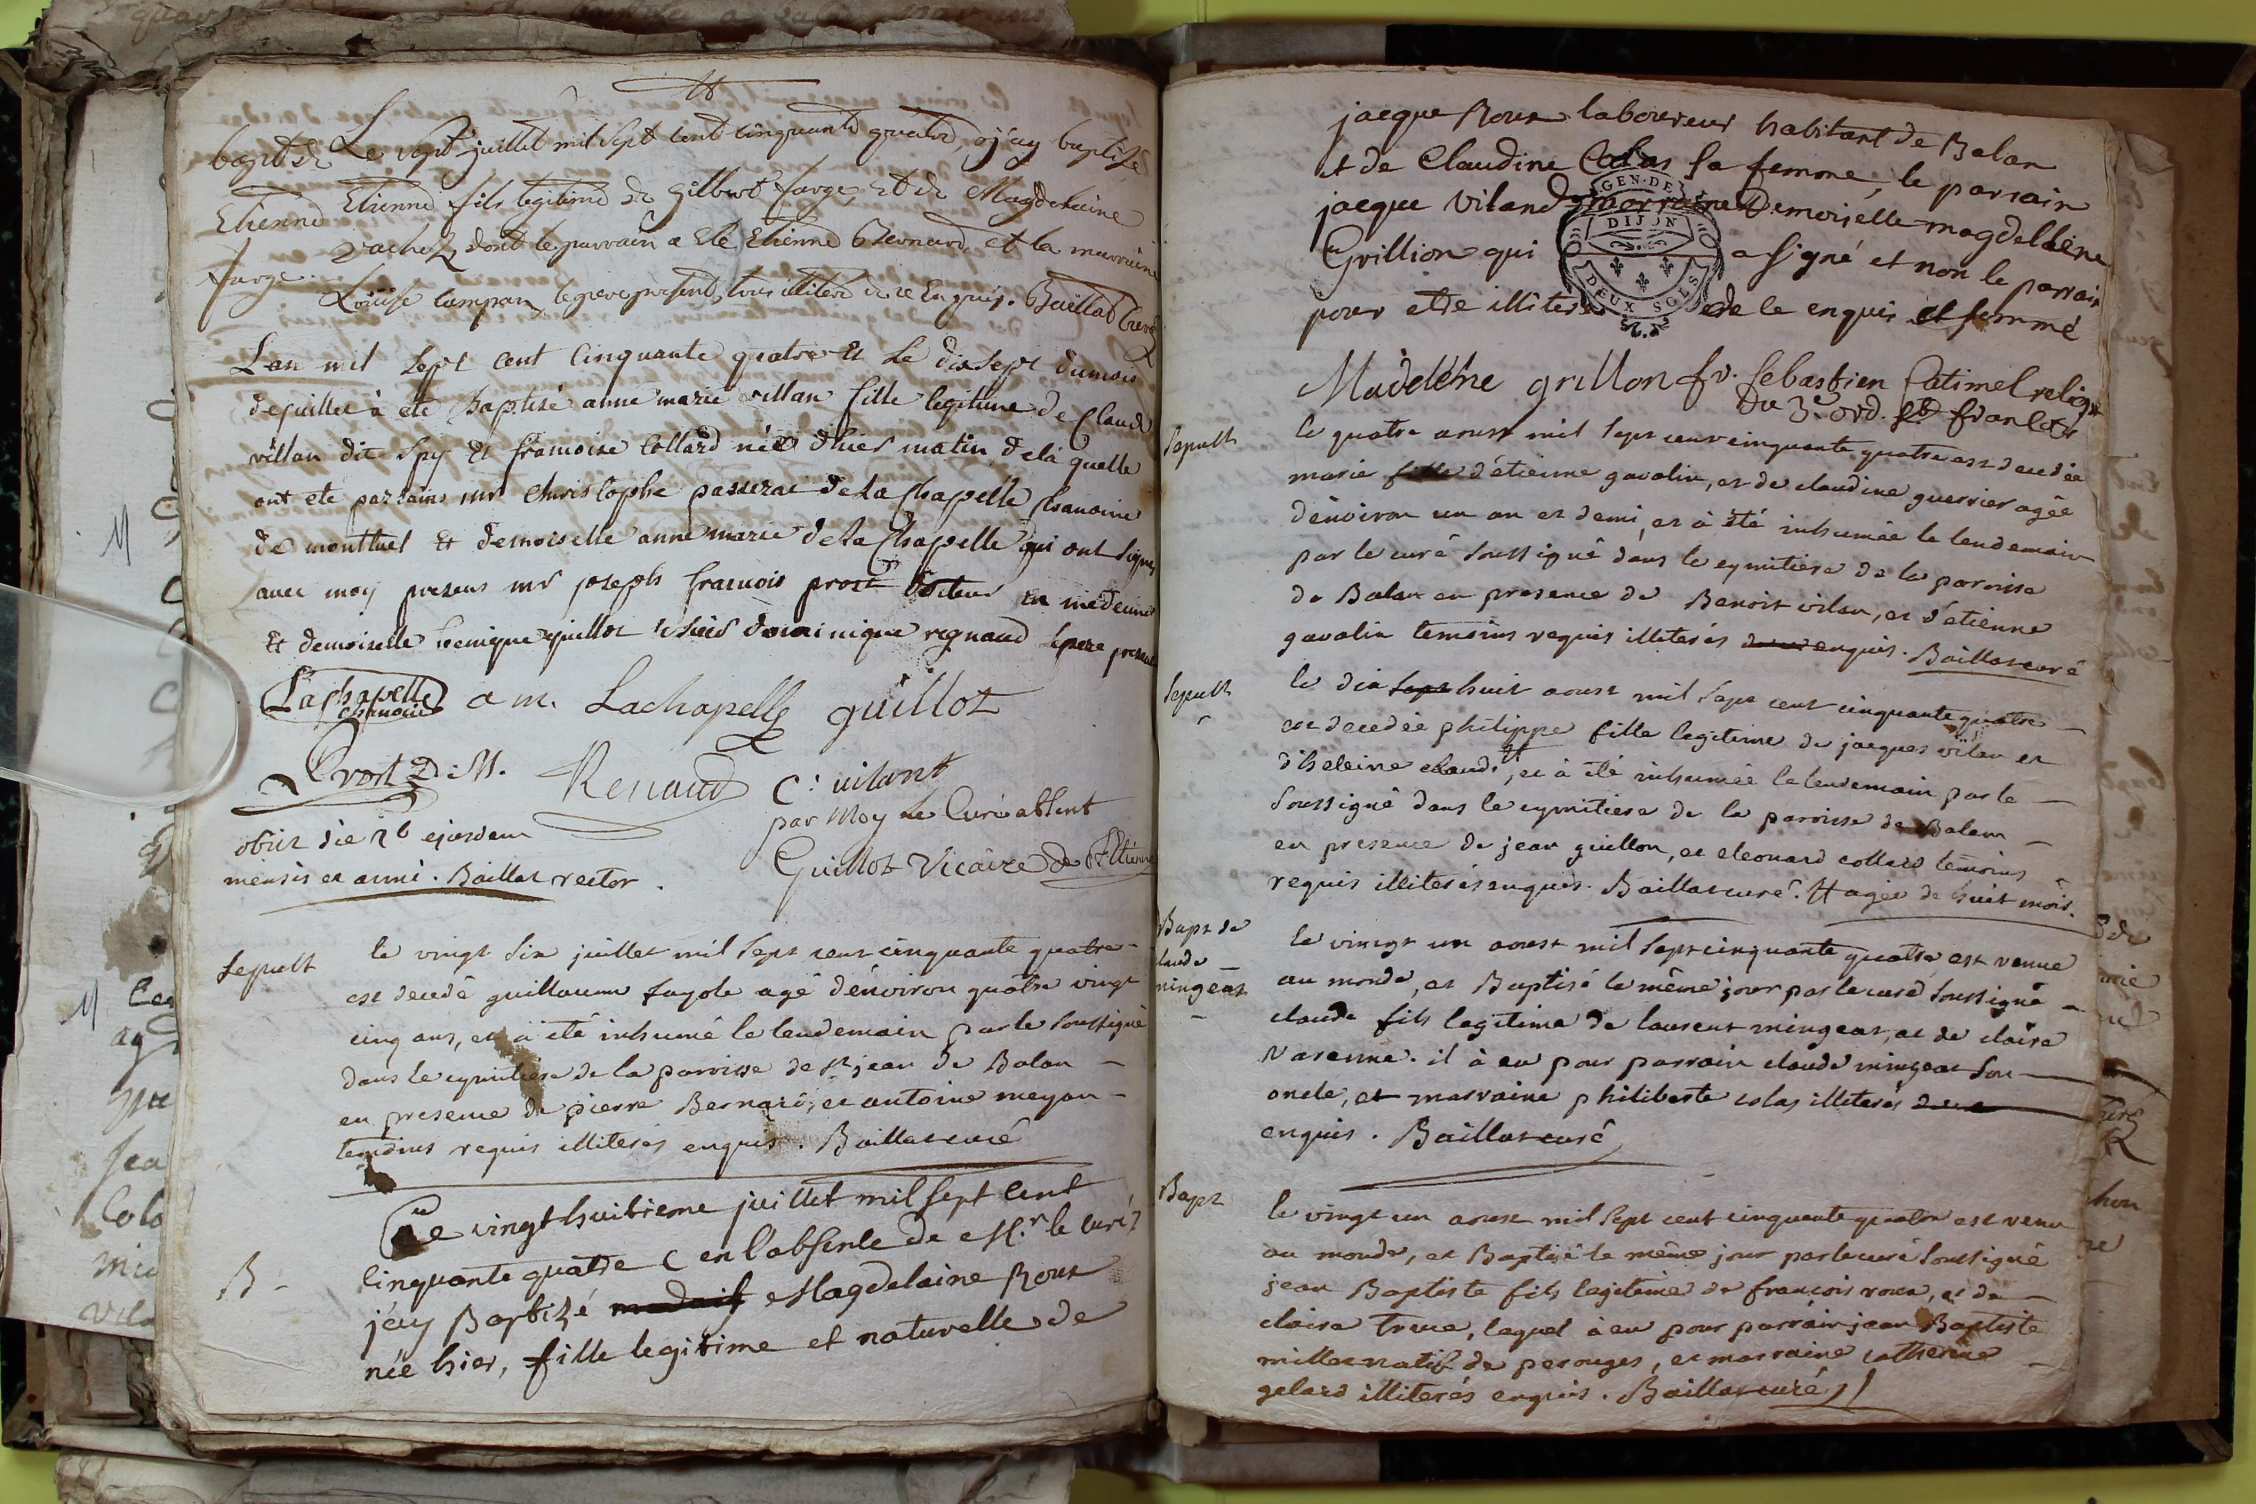 bapt de Le sept juillet mil sept cent cinquante quatre, j'ay baptisé
Etienne Etienne fils legitime de Gilbert farge, et de Magdelaine
farge vachez, dont le parrain a été Etienne Bernard, et la marraine
Louise le pere present, tous illiteré de ce enquis. Baillat Curé
L'an mil sept cent cinquante quatre et le dix sept dumois
de juillet à eté baptisé anne marie villan fille legitime de Claude
villan dit spy et francoise Collard née d'hier matin de la quelle
ont eté parrains mr christophe passerat de La chapelle chanoine
de montluel et demoiselle anne marie de la Chapelle qui ont signes
avec moy presens mr joseph francois prost docteur en medecine
et demoiselle guillot dominique regnaud le pere present
Lachapelle
chanoine
a m. Lachapelle guillot
Prost D. M. Renaud C. vilant
par Moy Le Curé absent
Guillot Vicaire de St Etienne
obiit die 26 ejusdem
mensis et anni. Baillat rector.
Sepult le vingt six juillet mil sept cent cinquante quatre
est decedé guillaume fayole agé d'environ quatre vingt
cinq ans, et a été inhumé le lendemain par le soussigné
dans le cymitiere de la paroisse de st jean de Balan
en presence de pierre Bernard, et antoine meyan
temoins requis illiterés enquis. Baillat curé
B Le vingt huitieme juillet mil sept cent
cinquante quatre (en l'absence de Mr. le curé)
j'ay Baptizé Magdelaine Roux
née hier, fille legitime et naturelle de
jacque Roux laboureur habitant de Balan
et de Claudine Colas sa femme, le parrain
jacque Viland marraine Demoiselle magdeleine
Grillion qui a signé et non le parrain
pour etre illiteré de ce enquis et sommé
GEN. DE
DIJON
DEUX SOLS
Madeléne grillon fr. Sebastien Catimel religx
du 3e. ord. St francois
Sepult le quatre aoust mil sept cent cinquante quatre est decedée
marie fille d'étienne gavolin, et de claudine guerrier agée
d'environ un an et demi, et à été inhumée le lendemain
par le curé soussigné dans le cymitiere de la paroisse
de Balan en presence de Benoit vilan, et d'etienne
gavolin temoins requis illiterés enquis. Baillat curé
Sepult le dix sept huit aoust mil sept cent cinquante quatre
est decedée philippe fille legitime de jacques vilan et
d'heleine claude #, et à été inhumée le lendemain par le
soussigné dans le cymitiere de la paroisse de Balan
en presence de jean guillon, et eleonard collard temoins
requis illiterés enquis. Baillat curé. # agée de huit mois.
Bapt de
claude
mingeat
le vingt un aoust mil sept cinquante quatre est venue
au monde, et Baptisé le même jour par le curé soussigné
claude fils legitime de laurent mingeat, et de claire
varenne. il à eu pour parrain claude mingeat son
oncle, et marraine philiberte colas illiterés
enquis. Baillat curé
Bapt le vingt un aoust mil sept cent cinquante quatre est venu
au monde, et Baptisé le même jour par le curé soussigné
jean Baptiste fils legitime de françois roux, et de
claire, lequel à eu pour parrain jean Baptiste
millet natif de perouges, et marraine catherine
gelard illiterés enquis. Baillat curé